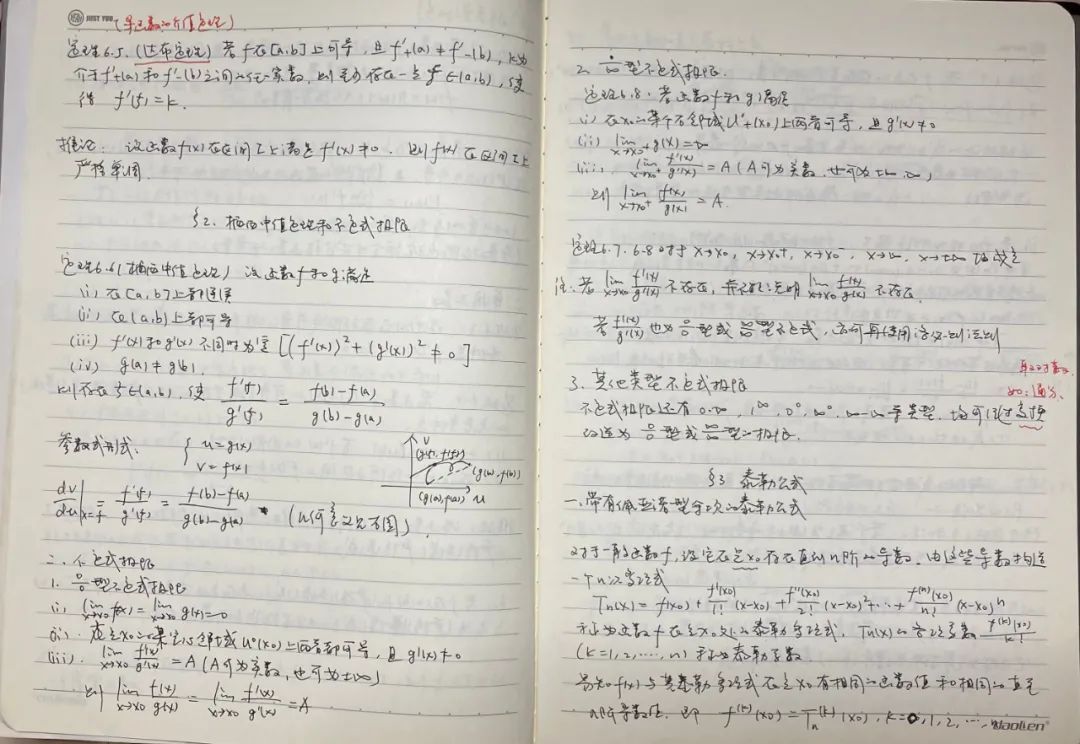 JUST YOU (导函数的介值定理)
定理6.5.(达布定理) 若f在[a,b]上可导,且f'+(a)≠f'-(b), k为
介于f'+(a)和f'-(b)之间的任一实数,则至少存在一点ξ∈(a,b),使
得 f'(ξ)=k.
推论. 设函数f(x)在区间I上满足f'(x)≠0. 则f(x)在区间I上
严格单调.
§2. 柯西中值定理和不定式极限
定理6.6(柯西中值定理) 设函数f和g满足
(i) 在[a,b]上都连续
(ii) 在(a,b)上都可导
(iii) f'(x)和g'(x)不同时为零 [(f'(x))²+(g'(x))²≠0]
(iv) g(a)≠g(b).
则存在ξ∈(a,b), 使 f'(ξ)/g'(ξ) = (f(b)-f(a))/(g(b)-g(a))
参数式形式. { u=g(x)
v=f(x)
v (g(ξ),f(ξ)) (g(b),f(b))
(g(a),f(a)) u
dv/du|x=ξ = f'(ξ)/g'(ξ) = (f(b)-f(a))/(g(b)-g(a)) (几何意义见右图).
二. 不定式极限
1. 0/0型不定式极限
(i) lim x→x0 f(x) = lim x→x0 g(x)=0
(ii). 在点x0的某空心邻域U°(x0)上两者都可导,且g'(x)≠0
(iii). lim x→x0 f'(x)/g'(x) = A (A可为实数,也可为±∞)
则 lim x→x0 f(x)/g(x) = lim x→x0 f'(x)/g'(x) = A
2. ·/∞型不定式极限.
定理6.8. 若函数f和g满足
(i) 在x0的某个右邻域U°+(x0)上两者可导,且g'(x)≠0
(ii) lim x→x0+ g(x)=∞
(iii). lim x→x0+ f'(x)/g'(x) = A (A可为实数,也可为±∞,∞)
则 lim x→x0+ f(x)/g(x) = A.
定理6.7, 6.8对于x→x0, x→x0+, x→x0-, x→∞, x→±∞均成立
注. 若 lim x→x0 f'(x)/g'(x) 不存在,并不能说明 lim x→x0 f(x)/g(x) 不存在.
若 f'(x)/g'(x) 也为0/0型或∞/∞型不定式,亦可再使用洛必达法则
3. 其他类型不定式极限
如:通分.
不定式极限还有0·∞, 1^∞, 0^0, ∞^0, ∞-∞等类型, 均可经过变换
改造为0/0型或∞/∞型的极限.
§3 泰勒公式
一. 带有佩亚诺型余项的泰勒公式
对于一般函数f,设它在点x0存在直到n阶的导数. 由这些导数构造
一个n次多项式
Tn(x) = f(x0) + f'(x0)/1! (x-x0) + f''(x0)/2! (x-x0)² + ··· + f^(n)(x0)/n! (x-x0)^n
称为函数f在点x0处的泰勒多项式, Tn(x)的各项系数 f^(k)(x0)/k!
(k=1,2,···,n) 称为泰勒系数.
易知f(x)与其泰勒多项式在点x0有相同的函数值和相同的直至
n阶导数值. 即 f^(k)(x0)=Tn^(k)(x0), k=0,1,2,···,